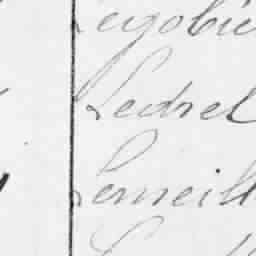 Legobie
Ledrel
Lemeill